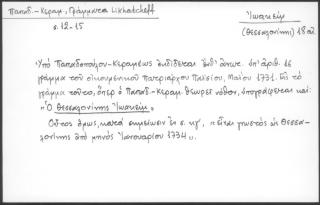 Παπαδ.-Κεραμ., Γράμματα Likhatcheff
σ. 12-15
Ἰωακείμ
(Θεσσαλονίκης) 18 αἰ.
Ὑπὸ Παπαδοπούλου-Κεραμέως ἐκδίδεται ἐνθ' ἀνωτ. ὑπ' ἀριθ. 16
γράμμα τοῦ οἰκουμενικοῦ Πατριάρχου Παϊσίου, Μαΐου 1731. Εἰς τὸ
γράμμα τοῦτο, ὅπερ ὁ Παπαδ.-Κεραμ. θεωρεῖ νόθον, ὑπογράφεται καὶ:
"Ὁ Θεσσαλονίκης Ἰωακείμ".
Οὗτος ὅμως, κατὰ σημείωσιν ἐν σ. κγ', "εἶναι γνωστὸς ὡς Θεσσα-
λονίκης ἀπὸ μηνὸς Ἰανουαρίου 1734".